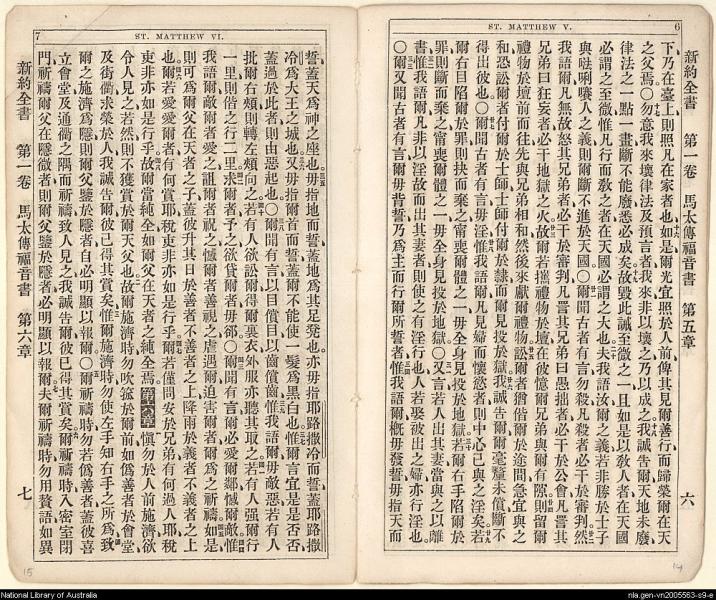 6
ST. MATTHEW V.
新約全書 第一卷 馬太傳福音書 第五章 六
下乃在臺上則照凡在家者也如是爾光宜照於人前俾其見爾善行而歸榮爾在天
之父焉○勿意我來壞律法及預言者我來非以壞之乃以成之我誠告爾天地未廢
律法之一點一畫斷不能廢悉必成矣故毀此誡至微之一且如是以敎人者在天國
必謂之至微惟凡行而敎之者在天國必謂之大也夫我語汝爾之義若非勝於士子
與唎人之義則爾斷不進於天國○爾聞古者有言勿殺凡殺者必干於審判然
我語爾凡無故怒其兄弟者必干於審判凡詈其兄弟曰愚拙者必干於公會凡詈其
兄弟曰狂妄者必干地獄之火故爾若攜禮物於壇在彼憶爾兄弟與爾有隙則留爾
禮物於壇前而往先與兄弟相和然後來獻爾禮物訟爾者猶偕爾於途間急宜與之
和恐訟爾者付爾於士師士師付爾於隸而爾見投於獄我誠告爾爾毫釐未償斷不
得出彼也○爾聞古者有言毋淫惟我語爾凡見婦而懷慾者則中心已與之淫矣若
爾右目陷爾於罪則抉而棄之甯喪爾體之一毋全身見投於地獄若爾右手陷爾於
罪則斷而棄之甯喪爾體之一毋全身見投於地獄○又言若人出其妻當與之以離
書惟我語爾凡非以淫故而出其妻者則使之有淫行也人若娶被出之婦亦行淫也
○爾又聞古者有言爾毋背誓乃爲主而行爾所誓者惟我語爾概毋發誓毋指天而
14
7
ST. MATTHEW VI.
誓蓋天爲神之座也毋指地而誓蓋地爲其足凳也亦毋指耶路撒冷而誓蓋耶路撒
冷爲大王之城也又毋指爾首而誓蓋爾不能使一髮爲黑白也惟爾言宜是是否否
蓋過於此者則由惡起也○爾聞有言以目償目以齒償齒惟我語爾毋敵惡若有人
批爾右頰則轉左頰向之若有人欲訟爾得爾裏衣外服亦聽其取之若有人强爾行
一里則偕之行二里求爾者予之欲貸爾者毋郤○爾聞有言爾必愛爾鄰憾爾敵惟
我語爾敵爾者愛之詛爾者祝之憾爾者善視之虐遇爾迫害爾者爾爲之祈禱如是
則可爲爾父在天者之子蓋彼升其日於善者不善者之上降雨於義者不義者之上
也爾若愛爾者有何賞耶稅吏非亦如是行乎爾若僅問安於兄弟有何過人耶稅
吏非亦如是行乎故爾當純全如爾父在天者之純全焉第六章愼勿於人前施濟欲
令人見之若然則不獲賞於爾天父也故爾施濟時勿吹箛於爾前如僞善者於會堂
及街衢求榮於人我誠告爾彼已得其賞矣惟爾施濟時勿使左手知右手之所爲致
爾之施濟爲隱則爾父鑒於隱者自必明顯以報爾○爾祈禱時勿若僞善者蓋彼喜
立會堂及通衢之隅而祈禱致人見之我誠告爾彼已得其賞矣爾祈禱時入密室閉
門祈禱爾父在隱微者則爾父鑒於隱者必明顯以報爾夫爾祈禱時勿用贅語如異
新約全書 第一卷 馬太傳福音書 第六章 七
15
National Library of Australia
nla.gen-vn2005563-s9-e